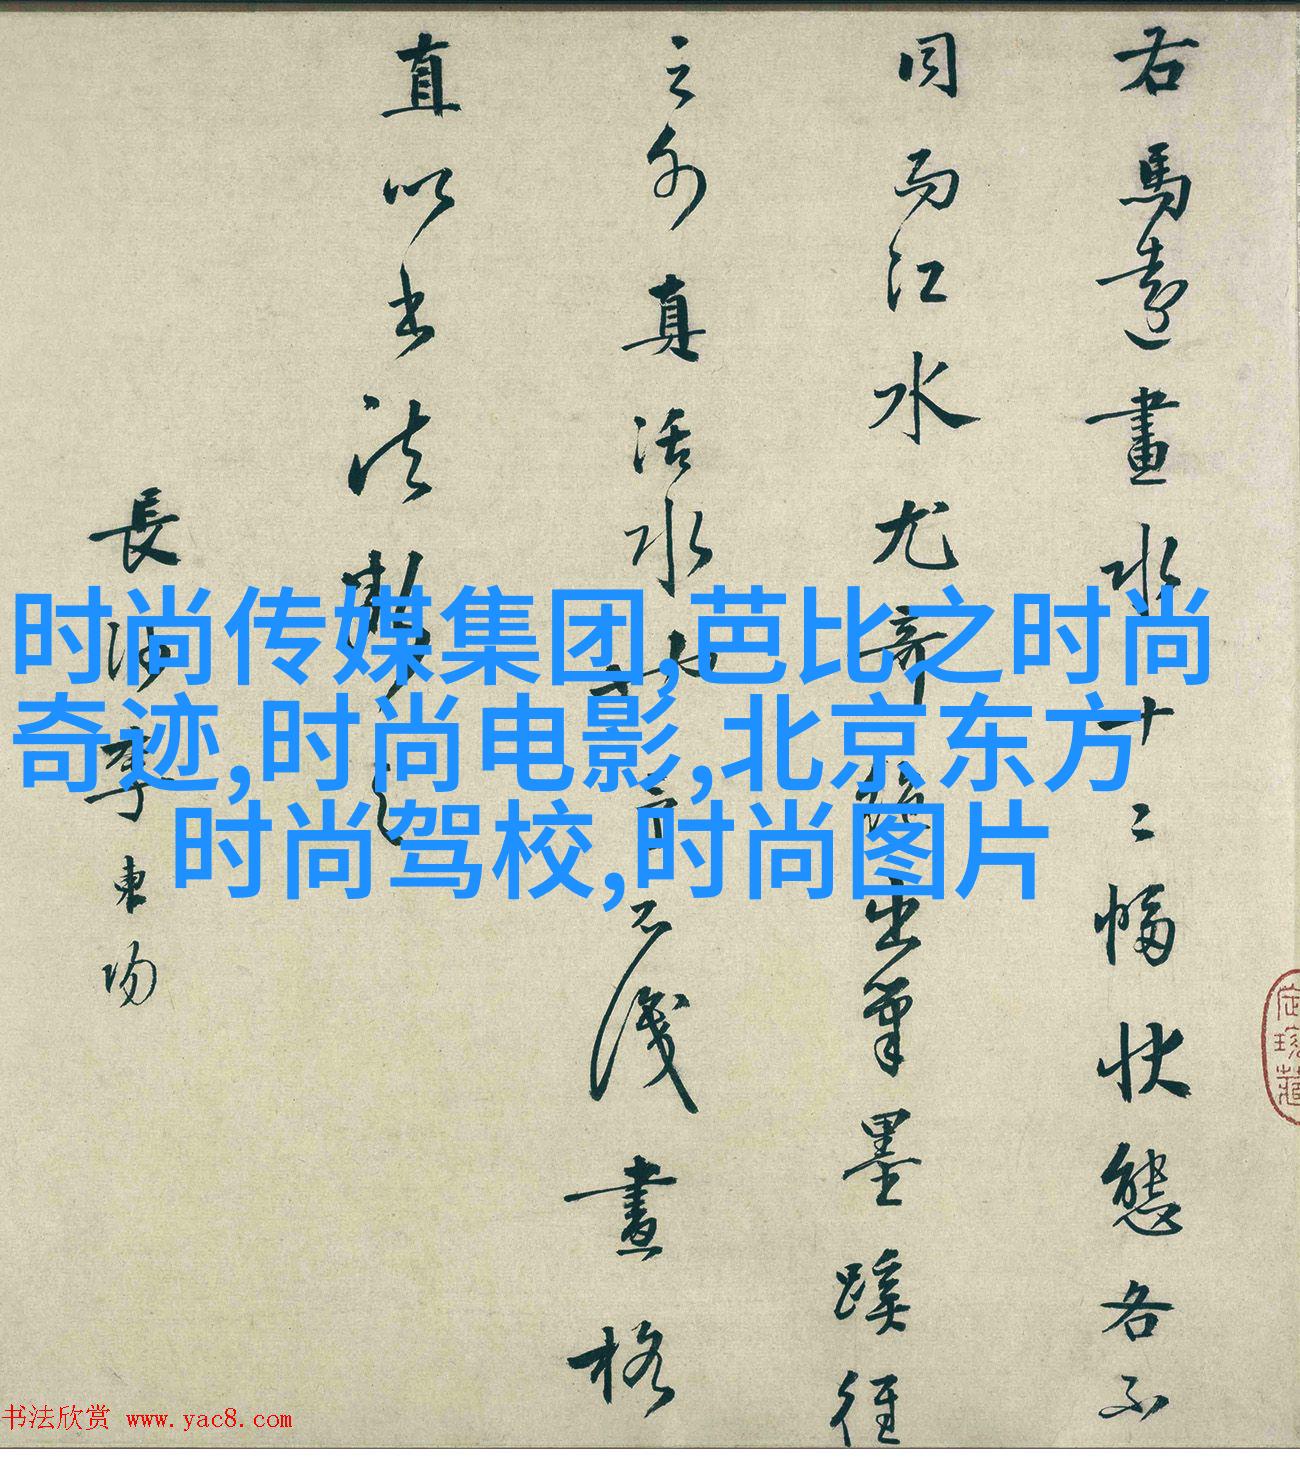 右馬遠畫水十二幅狀態各不
同而江水尤奇絕出筆墨蹊徑
之外真活水也不識畫格
直以書法觀之
長沙李東陽
时尚传媒集团,芭比之时尚
奇迹,时尚电影,北京东方
时尚驾校,时尚图片
书法欣赏 www.yac8.com